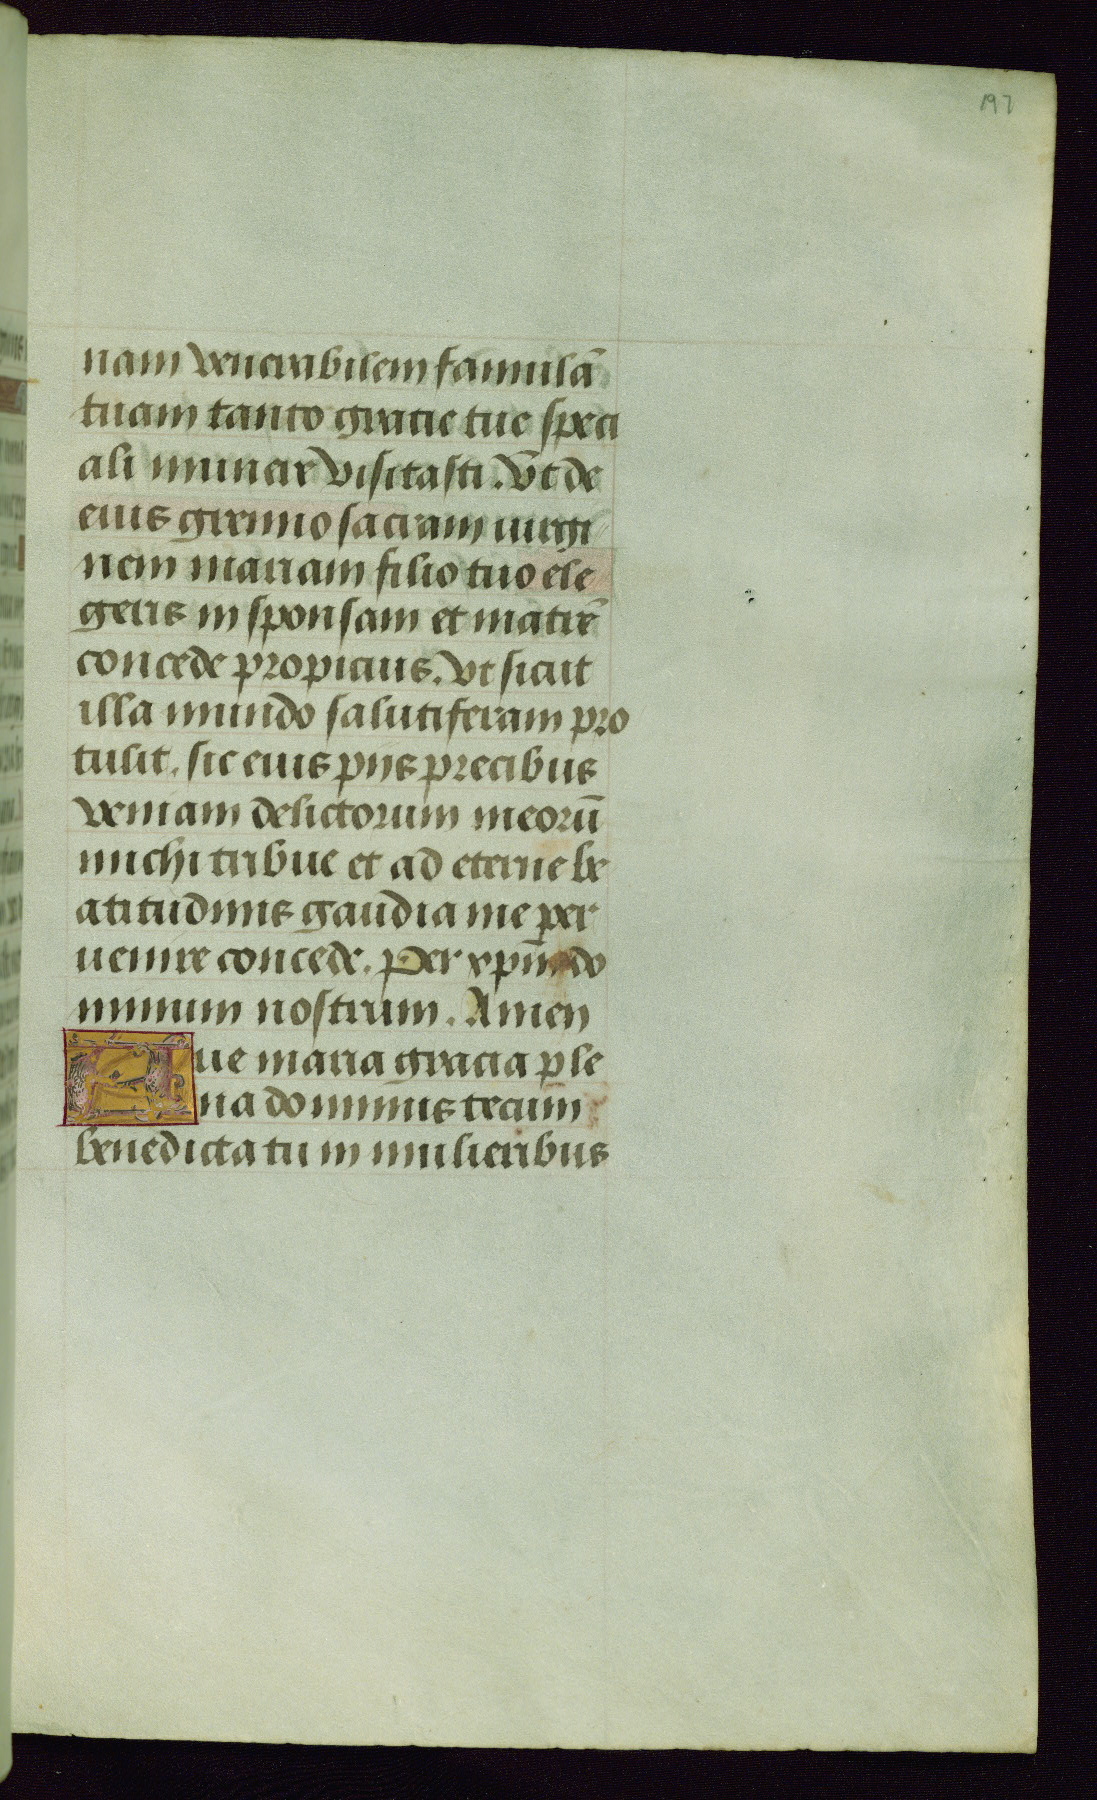 197
nam venerabilem famulā
tuam tanto gracie tue speci
ali munere visitasti. Vt de
eius gremio sacram uirgi
nem mariam filio tuo ele
geris in sponsam et matrē
concede propicius. Vt sicut
illa mundo salutiferam pro
tulit. sic eius pijs precibus
veniam delictorum meorū
michi tribue et ad eterne be
atitudinis gaudia me per
uenire concede. Per xp̄m do
minum nostrum. Amen
Aue maria gracia ple
na dominus tecum
benedicta tu in mulieribus